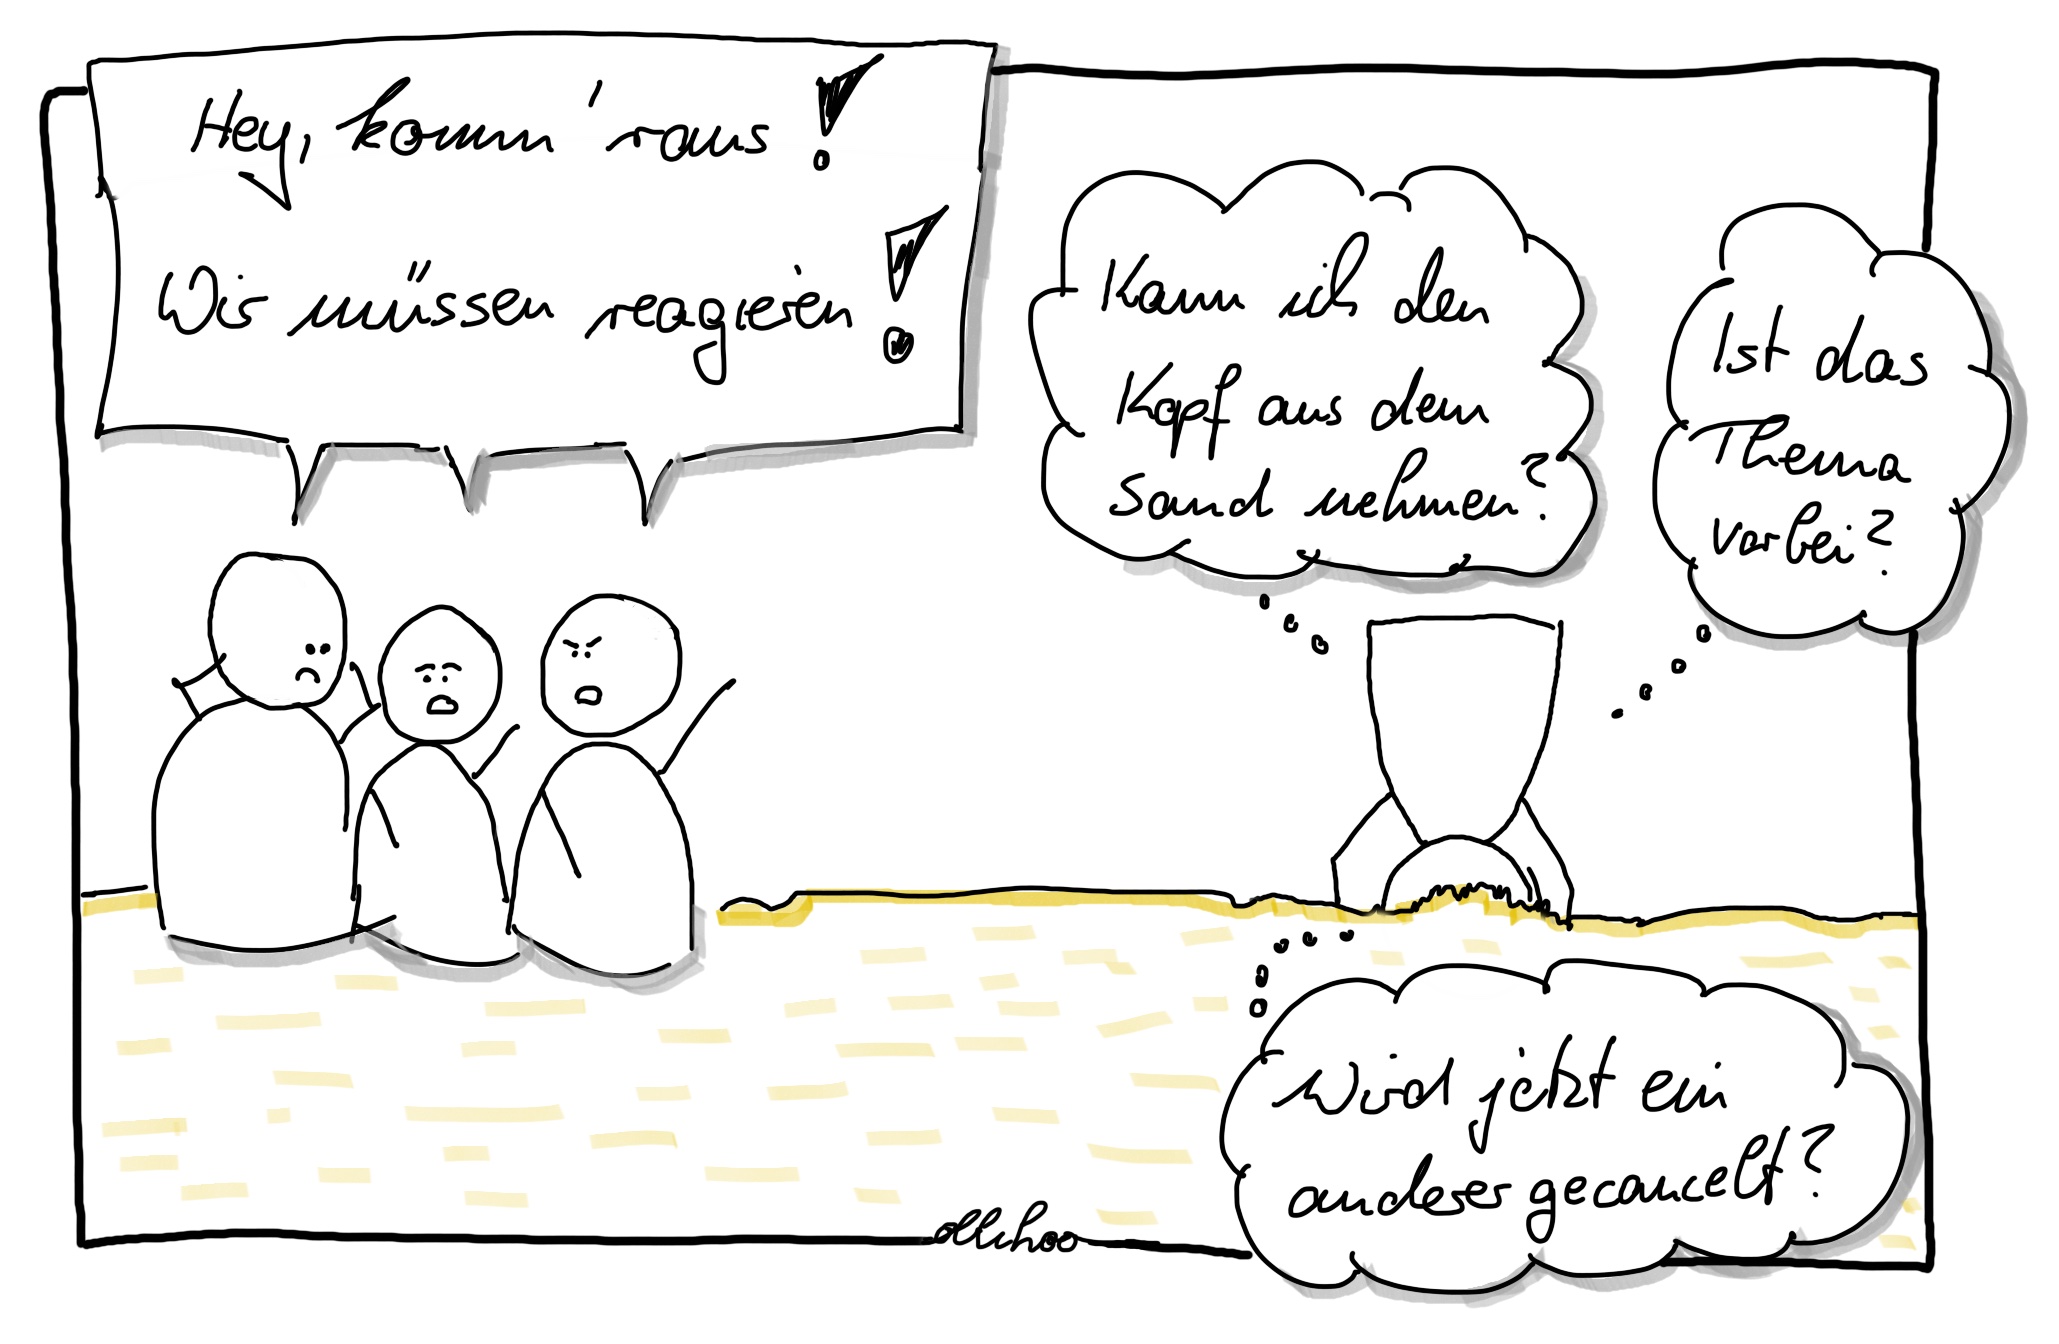 Hey, komm' raus!
Wir müssen reagieren!
Kann ich den
Kopf aus dem
Sand nehmen?
Ist das
Thema
vorbei?
Wird jetzt ein
anderer gecancelt?